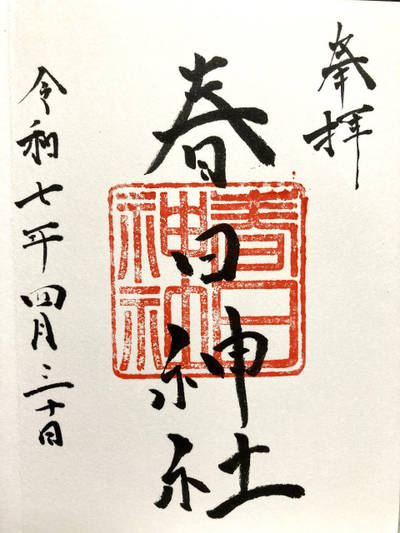 奉拝
春日神社
春日神社
令和七年四月三十日